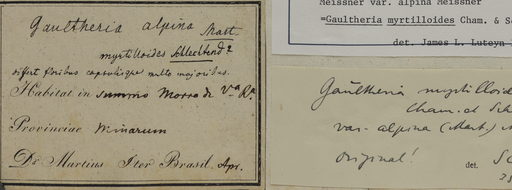 Gaultheria alpina Mart.
myrtilloides Schlechtend?
differt floribus capsulisque multo majoribus.
Habitat in summo Morro de Va Ra.
Provinciae Minarum
Dr Martius Iter Brasil. Apr.
Meissner var. alpina Meissner
=Gaultheria myrtilloides Cham. & S
det. James L. Luteyn
Gaultheria myrtilloid
Cham. et Sch
var- alpina (Mart.)
original!
det. S